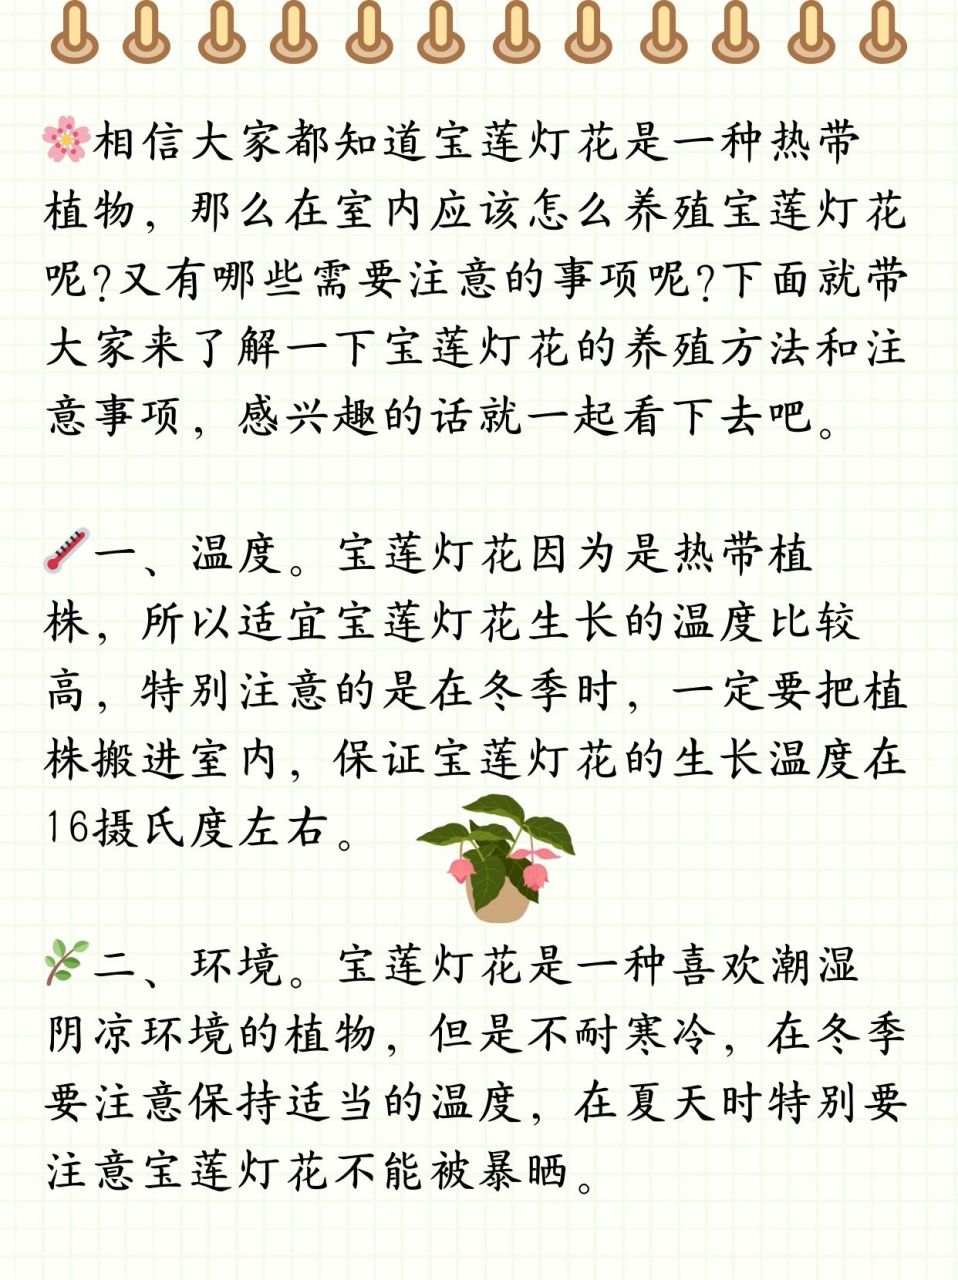 🌸相信大家都知道宝莲灯花是一种热带
植物，那么在室内应该怎么养殖宝莲灯花
呢?又有哪些需要注意的事项呢?下面就带
大家来了解一下宝莲灯花的养殖方法和注
意事项，感兴趣的话就一起看下去吧。
🌡️一、温度。宝莲灯花因为是热带植
株，所以适宜宝莲灯花生长的温度比较
高，特别注意的是在冬季时，一定要把植
株搬进室内，保证宝莲灯花的生长温度在
16摄氏度左右。
🌿二、环境。宝莲灯花是一种喜欢潮湿
阴凉环境的植物，但是不耐寒冷，在冬季
要注意保持适当的温度，在夏天时特别要
注意宝莲灯花不能被暴晒。